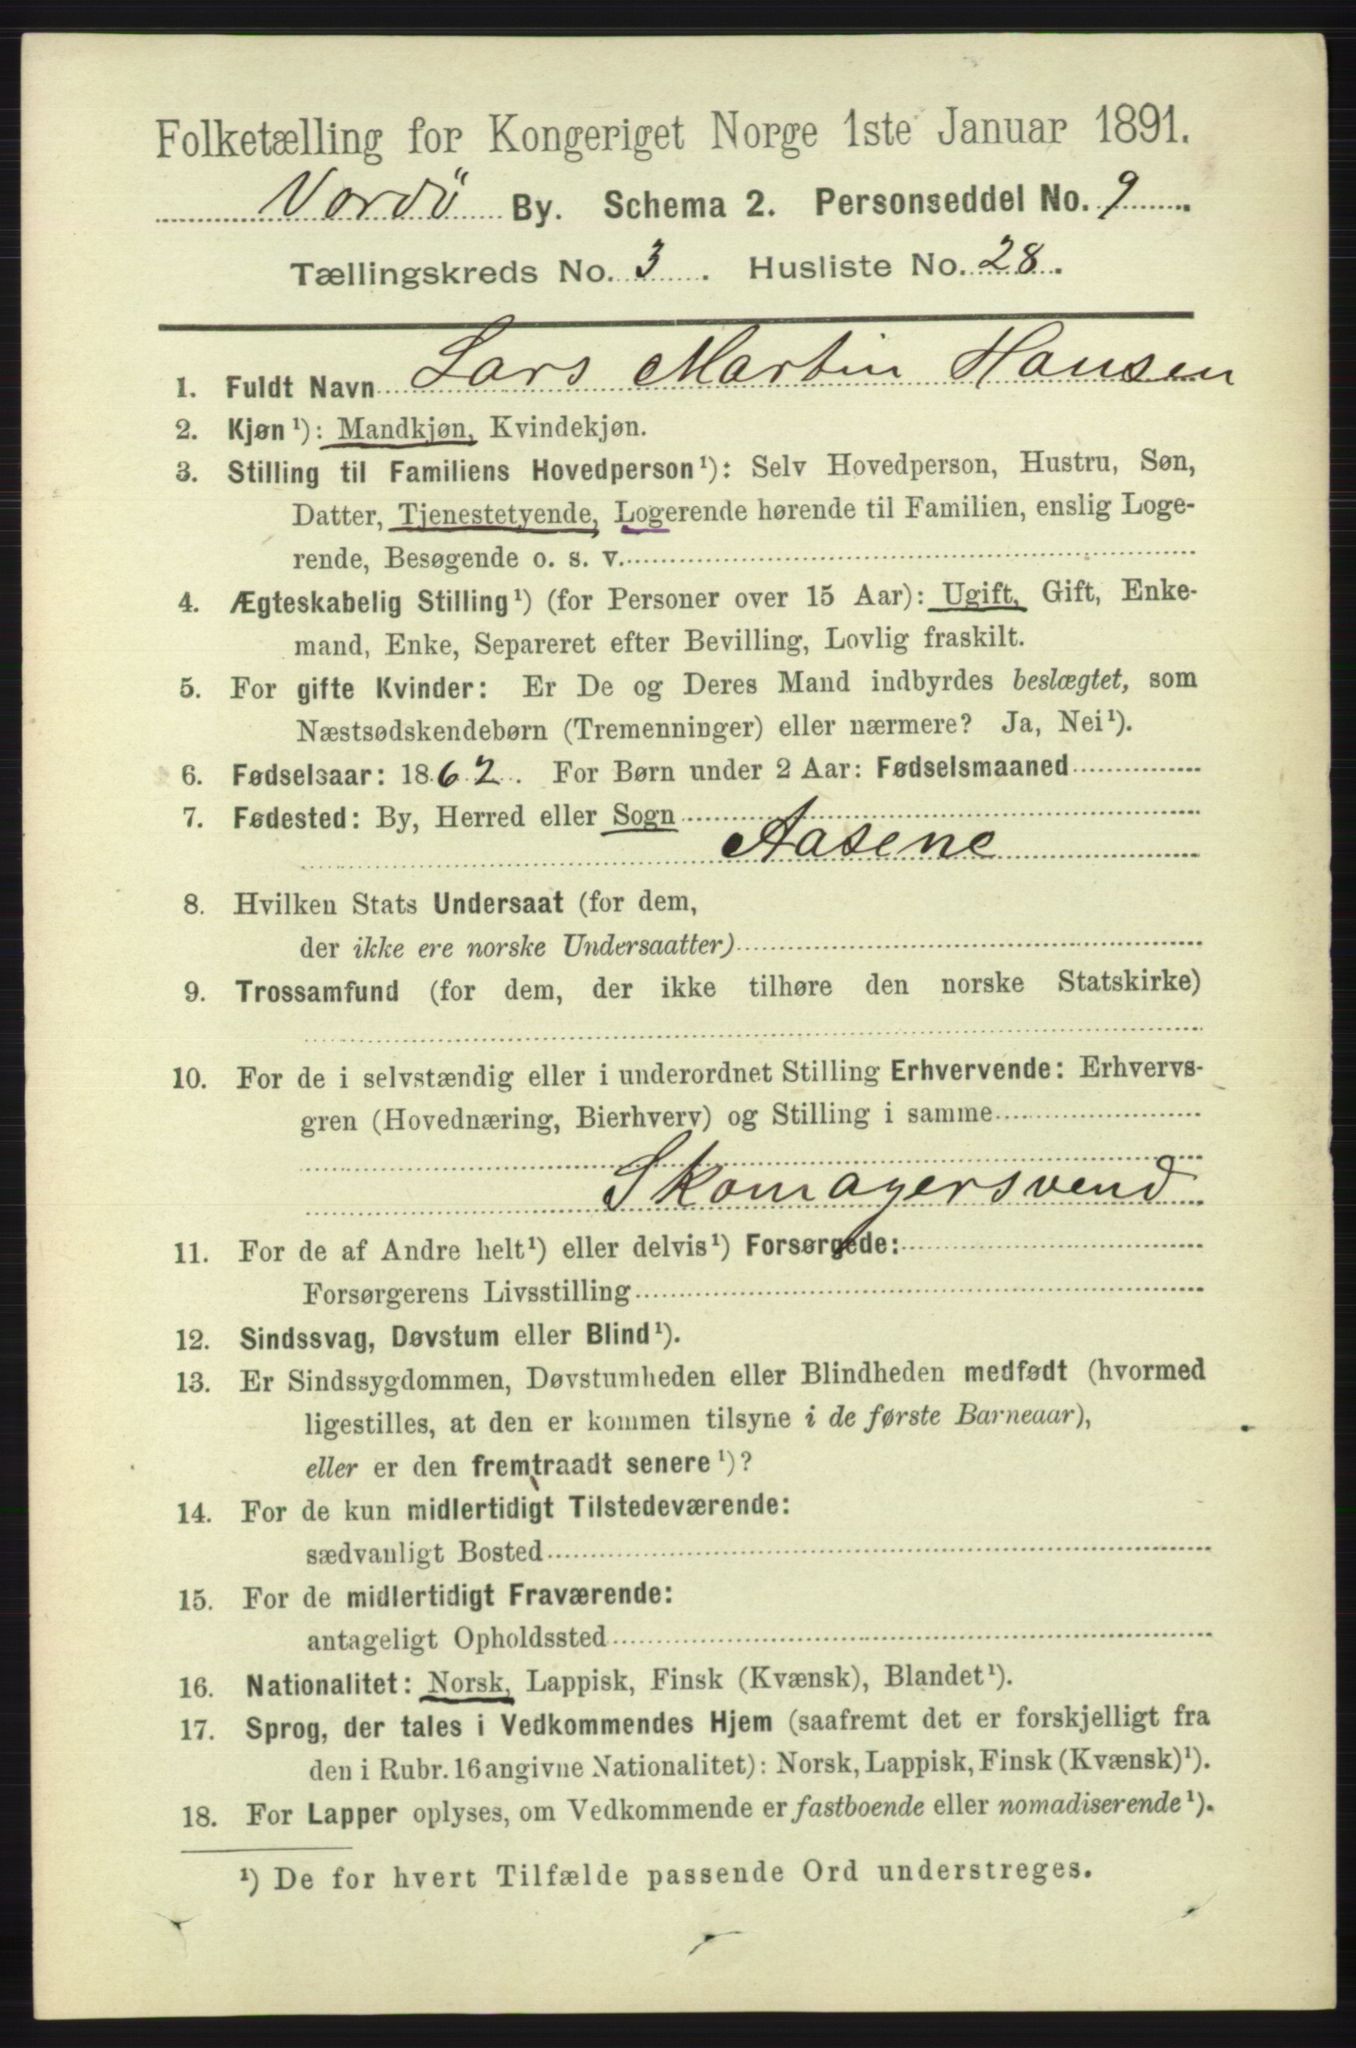 Folketælling for Kongeriget Norge 1ste Januar 1891.
Vardö By. Schema 2. Personseddel No. 9
Tællingskreds No. 3. Husliste No. 28.
1. Fuldt Navn Lars Martin Hansen
2. Kjøn¹): Mandkjøn, Kvindekjøn.
3. Stilling til Familiens Hovedperson¹): Selv Hovedperson, Hustru, Søn,
Datter, Tjenestetyende, Logerende hørende til Familien, enslig Loge-
rende, Besøgende o. s. v.
4. Ægteskabelig Stilling¹) (for Personer over 15 Aar): Ugift, Gift, Enke-
mand, Enke, Separeret efter Bevilling, Lovlig fraskilt.
5. For gifte Kvinder: Er De og Deres Mand indbyrdes beslægtet, som
Næstsødskendebørn (Tremenninger) eller nærmere? Ja, Nei¹).
6. Fødselsaar: 1862. For Børn under 2 Aar: Fødselsmaaned
7. Fødested: By, Herred eller Sogn
Aasene
8. Hvilken Stats Undersaat (for dem,
der ikke ere norske Undersaatter)
9. Trossamfund (for dem, der ikke tilhøre den norske Statskirke)
10. For de i selvstændig eller i underordnet Stilling Erhvervende: Erhvervs-
gren (Hovednæring, Bierhverv) og Stilling i samme
Skomagersvend
11. For de af Andre helt¹) eller delvis¹) Forsørgede:
Forsørgerens Livsstilling
12. Sindssvag, Døvstum eller Blind¹).
13. Er Sindssygdommen, Døvstumheden eller Blindheden medfødt (hvormed
ligestilles, at den er kommen tilsyne i de første Barneaar),
eller er den fremtraadt senere¹)?
14. For de kun midlertidigt Tilstedeværende:
sædvanligt Bosted
15. For de midlertidigt Fraværende:
antageligt Opholdssted
16. Nationalitet: Norsk, Lappisk, Finsk (Kvænsk), Blandet¹).
17. Sprog, der tales i Vedkommendes Hjem (saafremt det er forskjelligt fra
den i Rubr. 16 angivne Nationalitet): Norsk, Lappisk, Finsk (Kvænsk)¹).
18. For Lapper oplyses, om Vedkommende er fastboende eller nomadiserende¹).
¹) De for hvert Tilfælde passende Ord understreges.